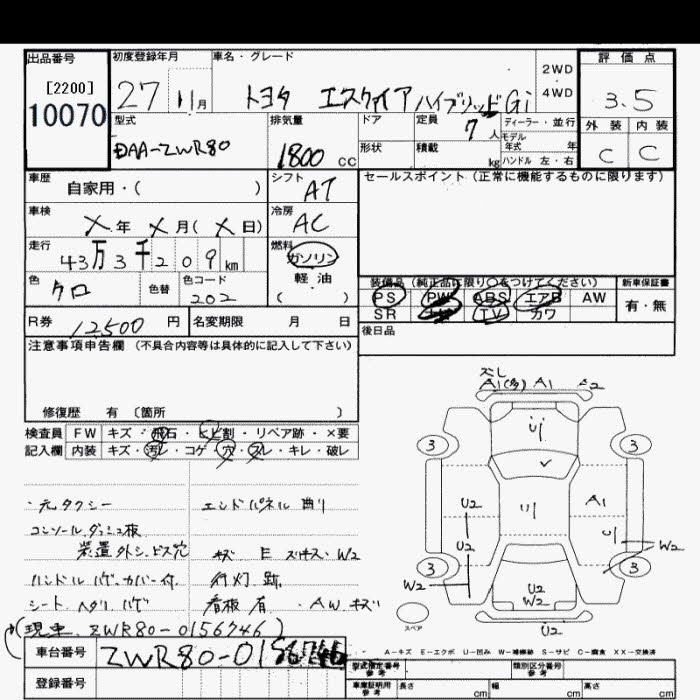 出品番号
[2200]
10070
初度登録年月
27 11月
車名・グレード
トヨタ エスクァイア ハイブリッド Gi
2WD
4WD
評価点
3.5
外装 内装
C C
型式
DAA-ZWR80
排気量
1800 cc
ドア
定員
7人
ディーラー・並行
モデル
年式 年
形状
積載
kg
ハンドル 左・右
車歴
自家用・( )
シフト
AT
セールスポイント(正常に機能するものに限ります)
車検
X年 X月(X日)
冷房
AC
走行
43万3千209km
燃料
ガソリン
軽油
( )
色
クロ
色替
色コード
202
装備品(純正品に限り○をつけてください)
PS PW ABS エアB AW
SR TV カワ
新車保証書
有・無
R券
12500円
名変期限 月 日
後日品
注意事項申告欄(不具合内容等は具体的に記入して下さい)
修復歴 有〔箇所 〕
検査員
記入欄
FW キズ・飛石・ヒビ割・リペア跡・×要
内装 キズ・汚レ・コゲ・穴・スレ・キレ・破レ
・元タクシー
コンソール、ダッシュ板
装置外シ、ビス穴
ハンドル ハゲ、カバー付
シート ヘタリ ハゲ
エンドパネル曲り
キズ E W2
行灯跡
看板有 ・AWキズ
(現車 ZWR80-0156746)
車台番号
ZWR80-0156746
登録番号
A1(多) A1 A2
U
3 3
U2 U A1
U2 U W2
3 3
W2
U2
W2
U2
スペア
A-キズ E-エクボ U-凹み W-補修跡 S-サビ C-腐食 XX-交換済
型式指定番号
参考
類別区分番号
参考
車庫証明用
参考
長さ cm
幅 cm
高さ cm